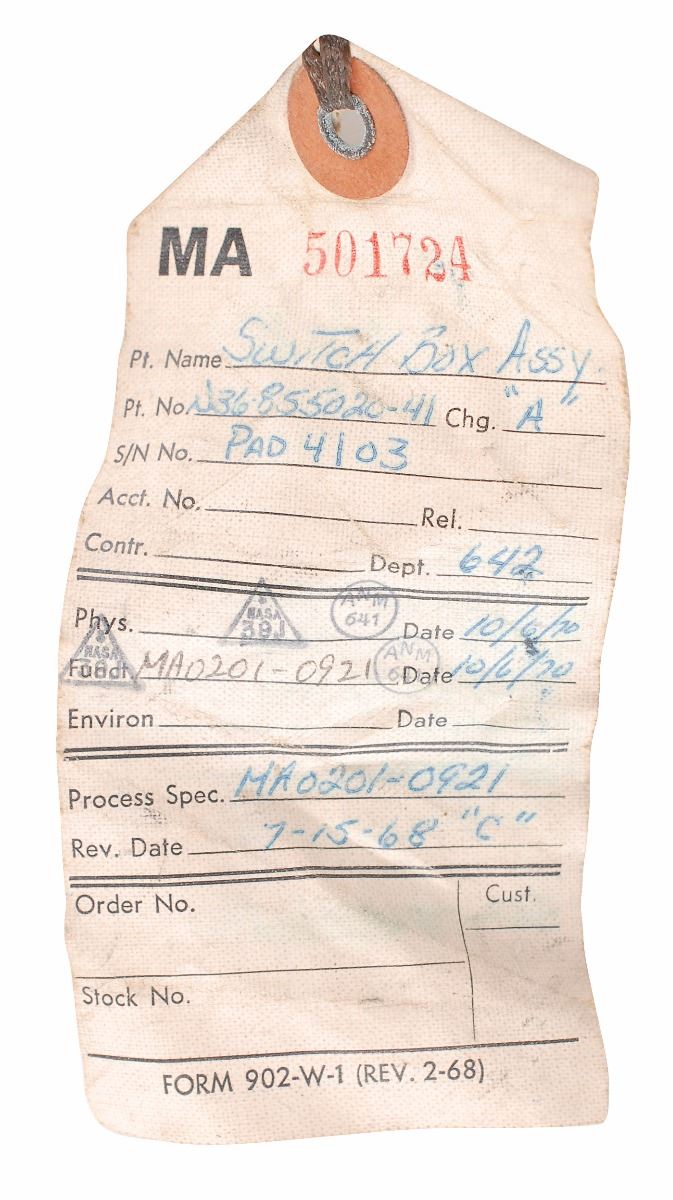 MA 501724
Pt. Name SWITCH BOX ASSY.
Pt. No. V36-855020-41 Chg. "A"
S/N No. PAD 4103
Acct. No. Rel.
Contr. Dept. 642
NASA 39J ANM 641
Phys. Date 10/6/70
NASA ANM
Funct MA0201-0921 Date 10/6/70
Environ Date
Process Spec. MA0201-0921
Rev. Date 7-15-68 "C"
Order No. Cust.
Stock No.
FORM 902-W-1 (REV. 2-68)